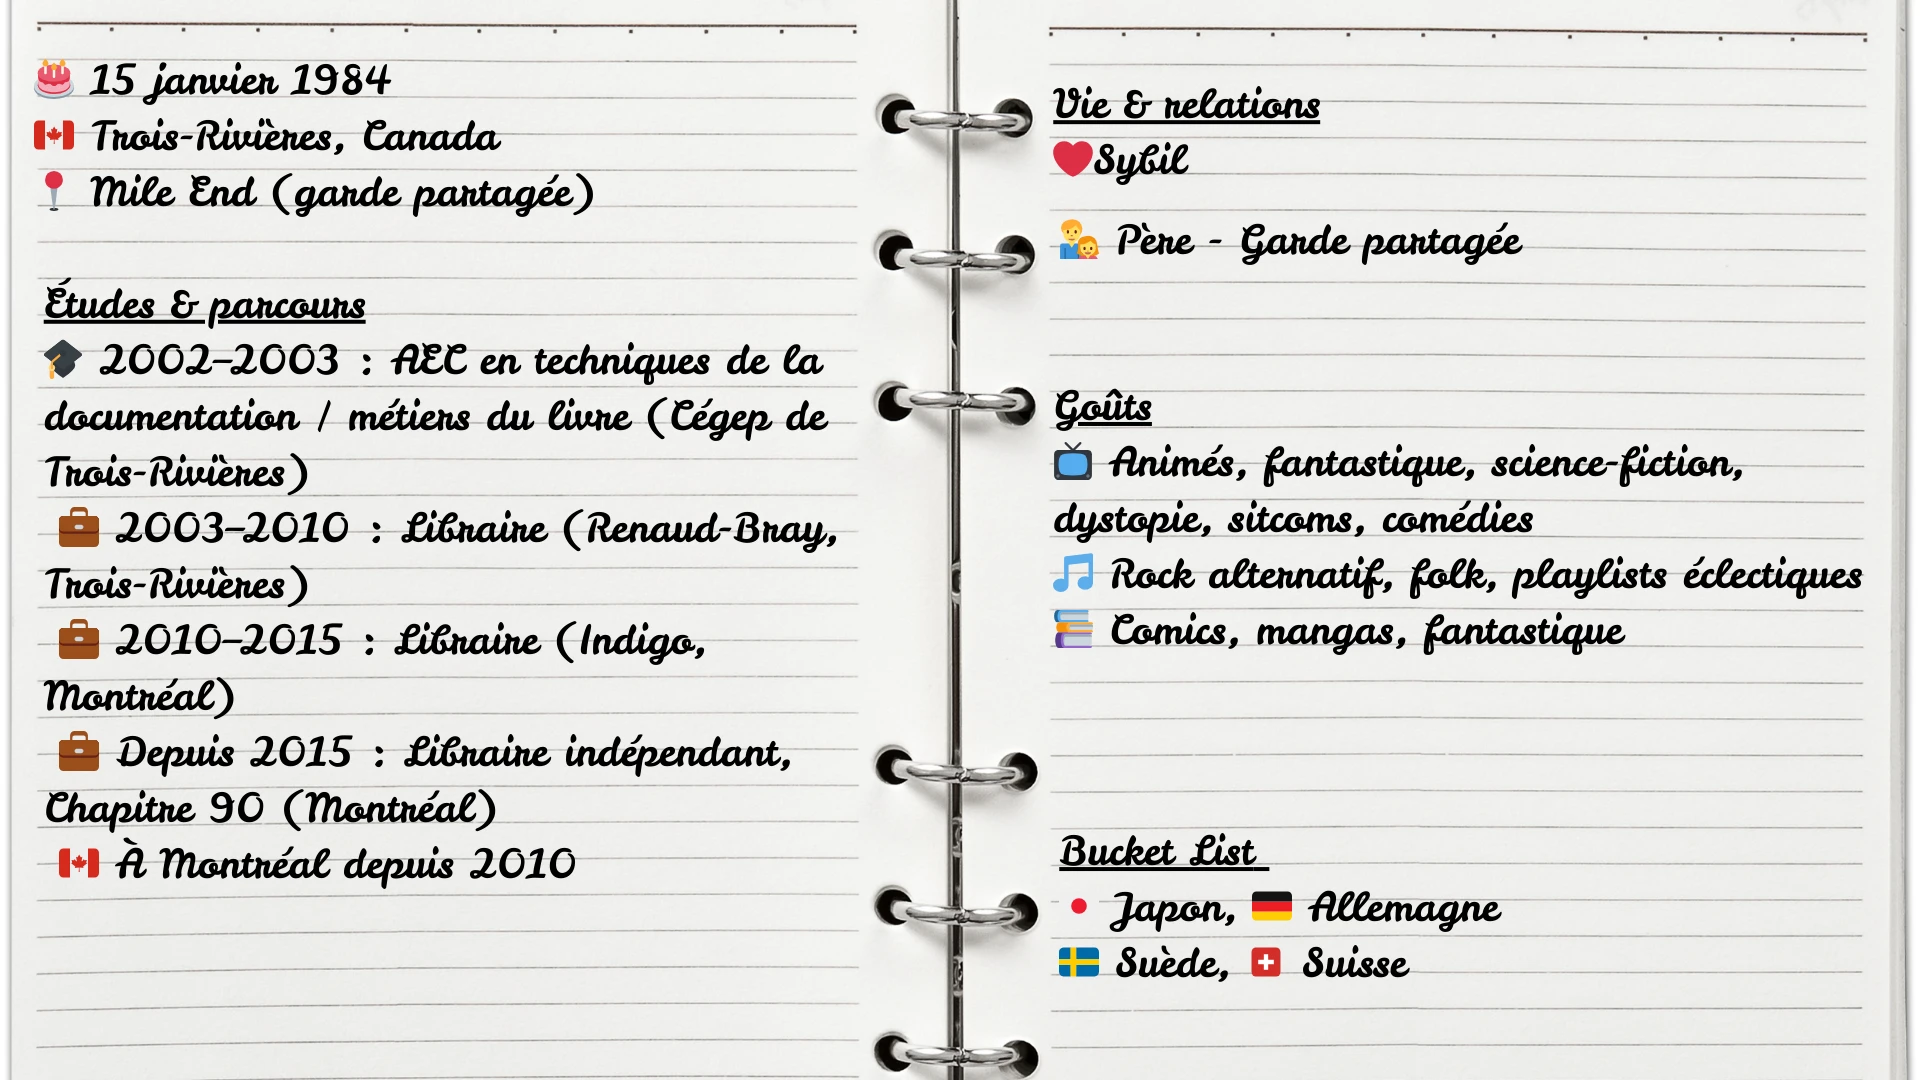 🎂 15 janvier 1984
🇨🇦 Trois-Rivières, Canada
📍 Mile End (garde partagée)
Études & parcours
🎓 2002–2003 : AEC en techniques de la
documentation / métiers du livre (Cégep de
Trois-Rivières)
💼 2003–2010 : Libraire (Renaud-Bray,
Trois-Rivières)
💼 2010–2015 : Libraire (Indigo,
Montréal)
💼 Depuis 2015 : Libraire indépendant,
Chapitre 90 (Montréal)
🇨🇦 À Montréal depuis 2010
Vie & relations
❤️Sybil
👨‍👧 Père - Garde partagée
Goûts
📺 Animés, fantastique, science-fiction,
dystopie, sitcoms, comédies
🎵 Rock alternatif, folk, playlists éclectiques
📚 Comics, mangas, fantastique
Bucket List
🇯🇵 Japon, 🇩🇪 Allemagne
🇸🇪 Suède, 🇨🇭 Suisse